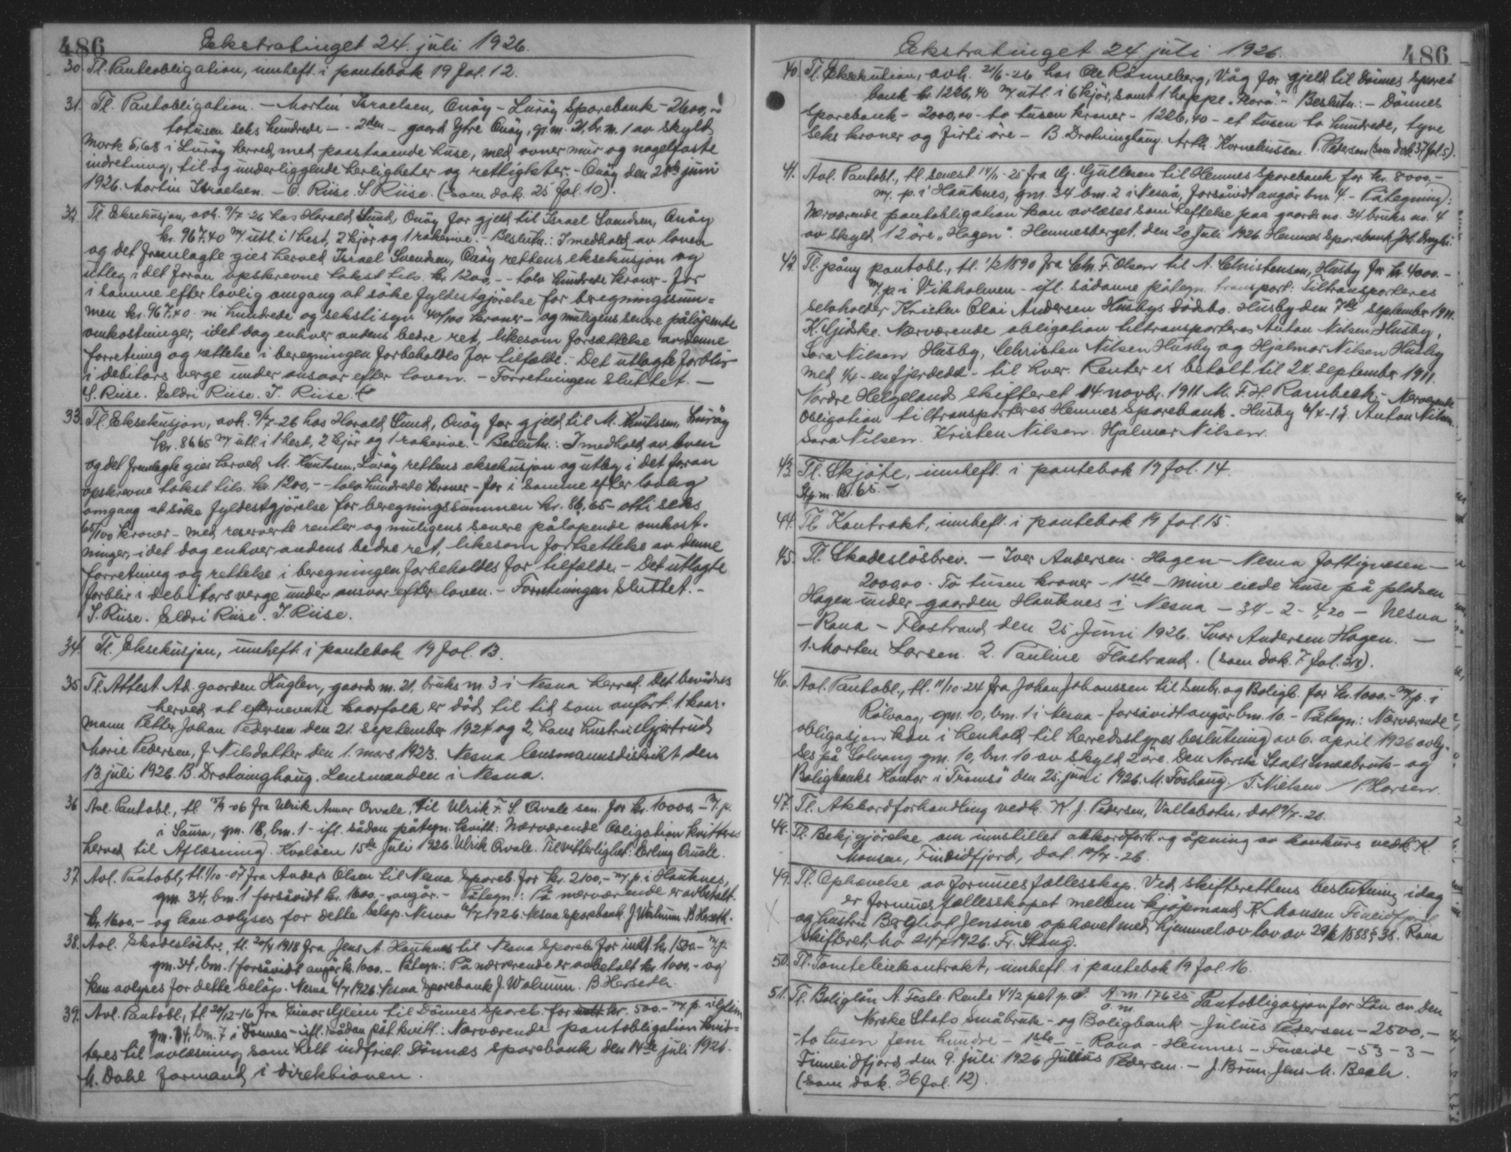 486
Ekstratinget 24. juli 1926.
30. Tl. Panteobligation, innheft. i pantebok 19 fol. 12.
31. Tl. Pantobligation. — Mortin Israelsen, Onøy - Lurøy Sparebank - 2600,-
totusen seks hundrede - - 2den - gaard Ytre Onøy, g.m. 21. br.m. 1 av skyld
Mark 6,68 i Lurøy herred, med paastaaende huse, med ovner mur og nagelfaste
indretning, til og underliggende herligheter og rettigheter. Onøy den juni
1926. Mortin Israelsen. — O. Riise. S. Riise. (som dok. 25 fol. 10).
32. Tl. Eksekusjon, avh. 9/7-26 hos Harald Lund, Onøy for gjeld til Israel Svendsen, Onøy
kr. 967.40 m/ utl. i 1 hest, 2 kjør og 1 rakerive. - Beslutn.: I medhold av loven
og det fremlagte gies herved Israel Svendsen, Onøy rettens eksekusjon og
utlæg i det foran opskrevne takst tils. kr. 1200,- - tolv hundrede kroner - for
i samme efter lovlig omgang at søke fyldestgjørelse for beregningssum-
men kr. 967.40 - ni hundrede og sekstisyv 40/100 kroner - og muligens senere påløpende
omkostninger, idet dog enhver andens bedre ret, likesom forsættelse av denne
forretning og rettelse i beregningen forbeholdes for tilfælde. - Det utlagte forblir
i debitors verge under ansvar efter loven. - Forretningen sluttet. —
S. Riise. Eldri Riise. I. Riise.
33. Tl. Eksekusjon, avh. 9/7-26 hos Harald Lund, Onøy for gjeld til M. Knutsen, Lurøy
kr. 86.65 m/ utl. i 1 hest, 2 kjør og 1 rakerive. - Beslutn.: I medhold av loven
og det fremlagte gies herved M. Knutsen, Lurøy rettens eksekusjon og utlæg i det foran
opskrevne takst tils. kr. 1200,- - tolv hundrede kroner - for i samme efter lovlig
omgang at søke fyldestgjørelse for beregningssummen kr. 86.65 - otti seks
65/100 kroner - med reserverte renter og muligens senere påløpende omkost-
ninger, idet dog enhver andens bedre ret, likesom fortsettelse av denne
forretning og rettelse i beregningen forbeholdes for tilfælde. - Det utlagte
forblir i debitors verge under ansvar efter loven. - Forretningen sluttet. -
S. Riise. Eldri Riise. I. Riise.
34. Tl. Eksekusjon, innheft. i pantebok 19 fol. 13.
35. Tl. Attest Ad. gaarden Huglen, gaards m. 21. bruks m. 3 i Nesna herred. Det bevidnes
herved at efternevnte kaarfolk er død til tid som anført. 1. kaar-
mann Petter Johan Pedersen den 21 september 1924 og 2, hans hustru Gjertrud
Marie Pedersen, f. Nilsdatter den 1. mars 1923. Nesna lensmannsdistrikt den
13 juli 1926. B. Drotninghaug. Lensmanden i Nesna.
36. Avl. Pantobl., tl. 06 fra Ulrik Amor Qvale, til Ulrik F. S. Qvale sen. for kr. 10000,- m/ p.
i Saura, gm. 18, bm. 1 - ifl. sådan påtegn. kvitt: Nærværende Obligation kvitteres
herved til Aflæsning. Kvaløen 15de Juli 1926. Ulrik Qvale. Til vitterlighet: Erling Qvale.
37. Avl. Pantobl., tl. 1/10-07 fra Anders Olsen til Nesna Spareb. for kr. 2100,- m/ p. i Hauknes,
gm. 34, bm. 1 forsåvidt kr. 1600,- angår. - Påtegn.: På nærværende er avbetalt
kr. 1600,- og kan avlyses for dette beløp. Nesna 6/7 1926. Nesna Sparebank. J. Walnum. B. Herseth.
38. Avl. Skadesløsbr., tl. 1918 fra Jens A. Hauknes til Nesna Spareb. for inntil kr. 1500,- m/ p.
gm. 34, bm. 1 forsåvidt angår kr. 1000. - Påtegn: På nærværende er avbetalt kr. 1000,- og
kan avlyses for dette beløp. Nesna 6/7 1926. Nesna Sparebank. J. Walnum. B. Herseth
39. Avl. Pantobl., tl. 12-16 fra Einar Glein til Dønnes Spareb. for kr. 500,- m/ p. i Glein
gm. bm. 7 i Dønnes - ifl. sådan påt. kvitt: Nærværende pantobligation kvit-
teres til avlæsning som helt indfriet. Dønnæs Sparebank den 14de juli 1926.
M. Dahl formand i direktionen.
486
Ekstratinget 24 juli 1926.
40. Tl. Eksekution, avh. 21/6-26 hos Ole Rønneberg, Våg for gjeld til Dønnes Spare-
bank kr. 1226,40 m/ utl. i 6 kjør, samt 1 hoppe "Nora". - Beslutn.: - Dønnes
Sparebank - 2000,00 - to tusen kroner - 1226,40 - et tusen to hundrede, tyve
seks kroner og firti øre - B. Drotninghaug. Arth. Korneliussen. P. Pedersen (som dok. 37 fol. 5).
41. Avl. Pantobl., tl. senest fra Gullesen til Hemnes Sparebank for kr. 8000,-
m/ p. i Hauknes, gm. 34 bm. 2 i Nesna, forsåvidt angår bm. 4. - Påtegning:
Nærværende pantobligation kan avlæses som heftelse paa gaards no. 34 bruks no. 4
av skyld 12 øre "Hagen". Hemnesberget, den 20 Juli 1926. Hemnes Sparebank.
42. Tl. påny pantobl., tl. 1890 fra Chr. F. Olsen til A. Christensen, Husby for kr. 4000.-
m/ p i Vikholmen - ifl. sådanne påtegn. transport: Tiltransporteres
selvholder Kristen Olai Andersen Husbys dødsbo. Husby den 7de september 1911.
K. Gjidske. Nærværende obligation tiltransporteres Anton Nilsen Husby,
Sara Nilsen Husby, Christen Nilsen Husby og Hjalmar Nilsen Husby
med 1/4 - en fjerdedel - til hver. Renter er betalt til 24 september 1911.
Nordre Helgelands skifteret 14 novbr. 1911. M. F. H. Rambeck. - Nærværende
Obligation tiltransporteres Hemnes Sparebank. Husby Anton Nilsen.
Sara Nilsen. Kristen Nilsen. Hjalmar Nilsen.
43. Tl. Skjøte, innheft. i pantebok 19 fol. 14
St. m. 16.65. -
44. Tl. Kontrakt, innheft. i pantebok 19 fol. 15.
45. Tl. Skadesløsbrev. — Iver Andersen Hagen - Nesna Fattigvæsen —
2000,00. To tusen kroner - 1ste - mine eiede huse på pladsen
Hagen under gaarden Hauknes i Nesna - 34 - 2 - 4,20 - Nesna
- Rana - Flostrand den 25 Juni 1926. Iver Andersen Hagen. —
1. Morten Larsen. 2. Pauline Flostrand. (som dok. 7 fol. ).
46. Avl. Pantobl., tl. 11/10-24 fra Johan Johanssen til Småbr. og Boligb. for kr. 1000.- m/ p. i
Rølvaag, gm. 10, bm. 1 i Nesna - forsåvidt angår bm. 10. - Påtegn: Nærværende
obligasjon kan i henhold til herredsstyres beslutning av 6. april 1926 avly-
ses på Solvang gm. 10, bn. 10 av skyld 2 øre. Den Norske Stats Småbruk- og
Boligbanks Kontor i Tromsø den 25. juni 1926. M. Foshaug / T. Nielsen / Larsen.
47. Tl. Akkordforhandling vedk. K. J. Pedersen, Vallabotn, dat.
48. Tl. Bekjgjørelse om innstillet akkordforh. og åpning av konkurs vedk. K.
Monsen, Finneidfjord, dat. 26.
49. Tl. Ophævelse av formuesfællesskap. Ved skifterettens beslutning idag
er formuesfællesskapet mellem kjøpmand K. Monsen Finneidfjord
og hustru Bergliot Jensine ophævet med hjemmel av lov av 29/6 1888 § 38. Rana
Skifteret, Mo 1926. Fr. Stang.
50. Tl. Tomteleiekontrakt, innheft. i pantebok 19 fol. 16.
51. Tl. Boliglån A. Faste Rente 4 1/2 pct. p. a. A. m. 17625 Pantobligasjon for Lån av den
Norske Stats Småbruk- og Boligbank - Julius Pedersen - 2500,-
- to tusen fem hundre - 1ste - Rana - Hemnes - Fineide - 53 - 3 -
Finneidfjord den 9. juli 1926. Julius Pedersen. - J. Brun. Jens M. Bech.
(som dok. 36 fol. 12).